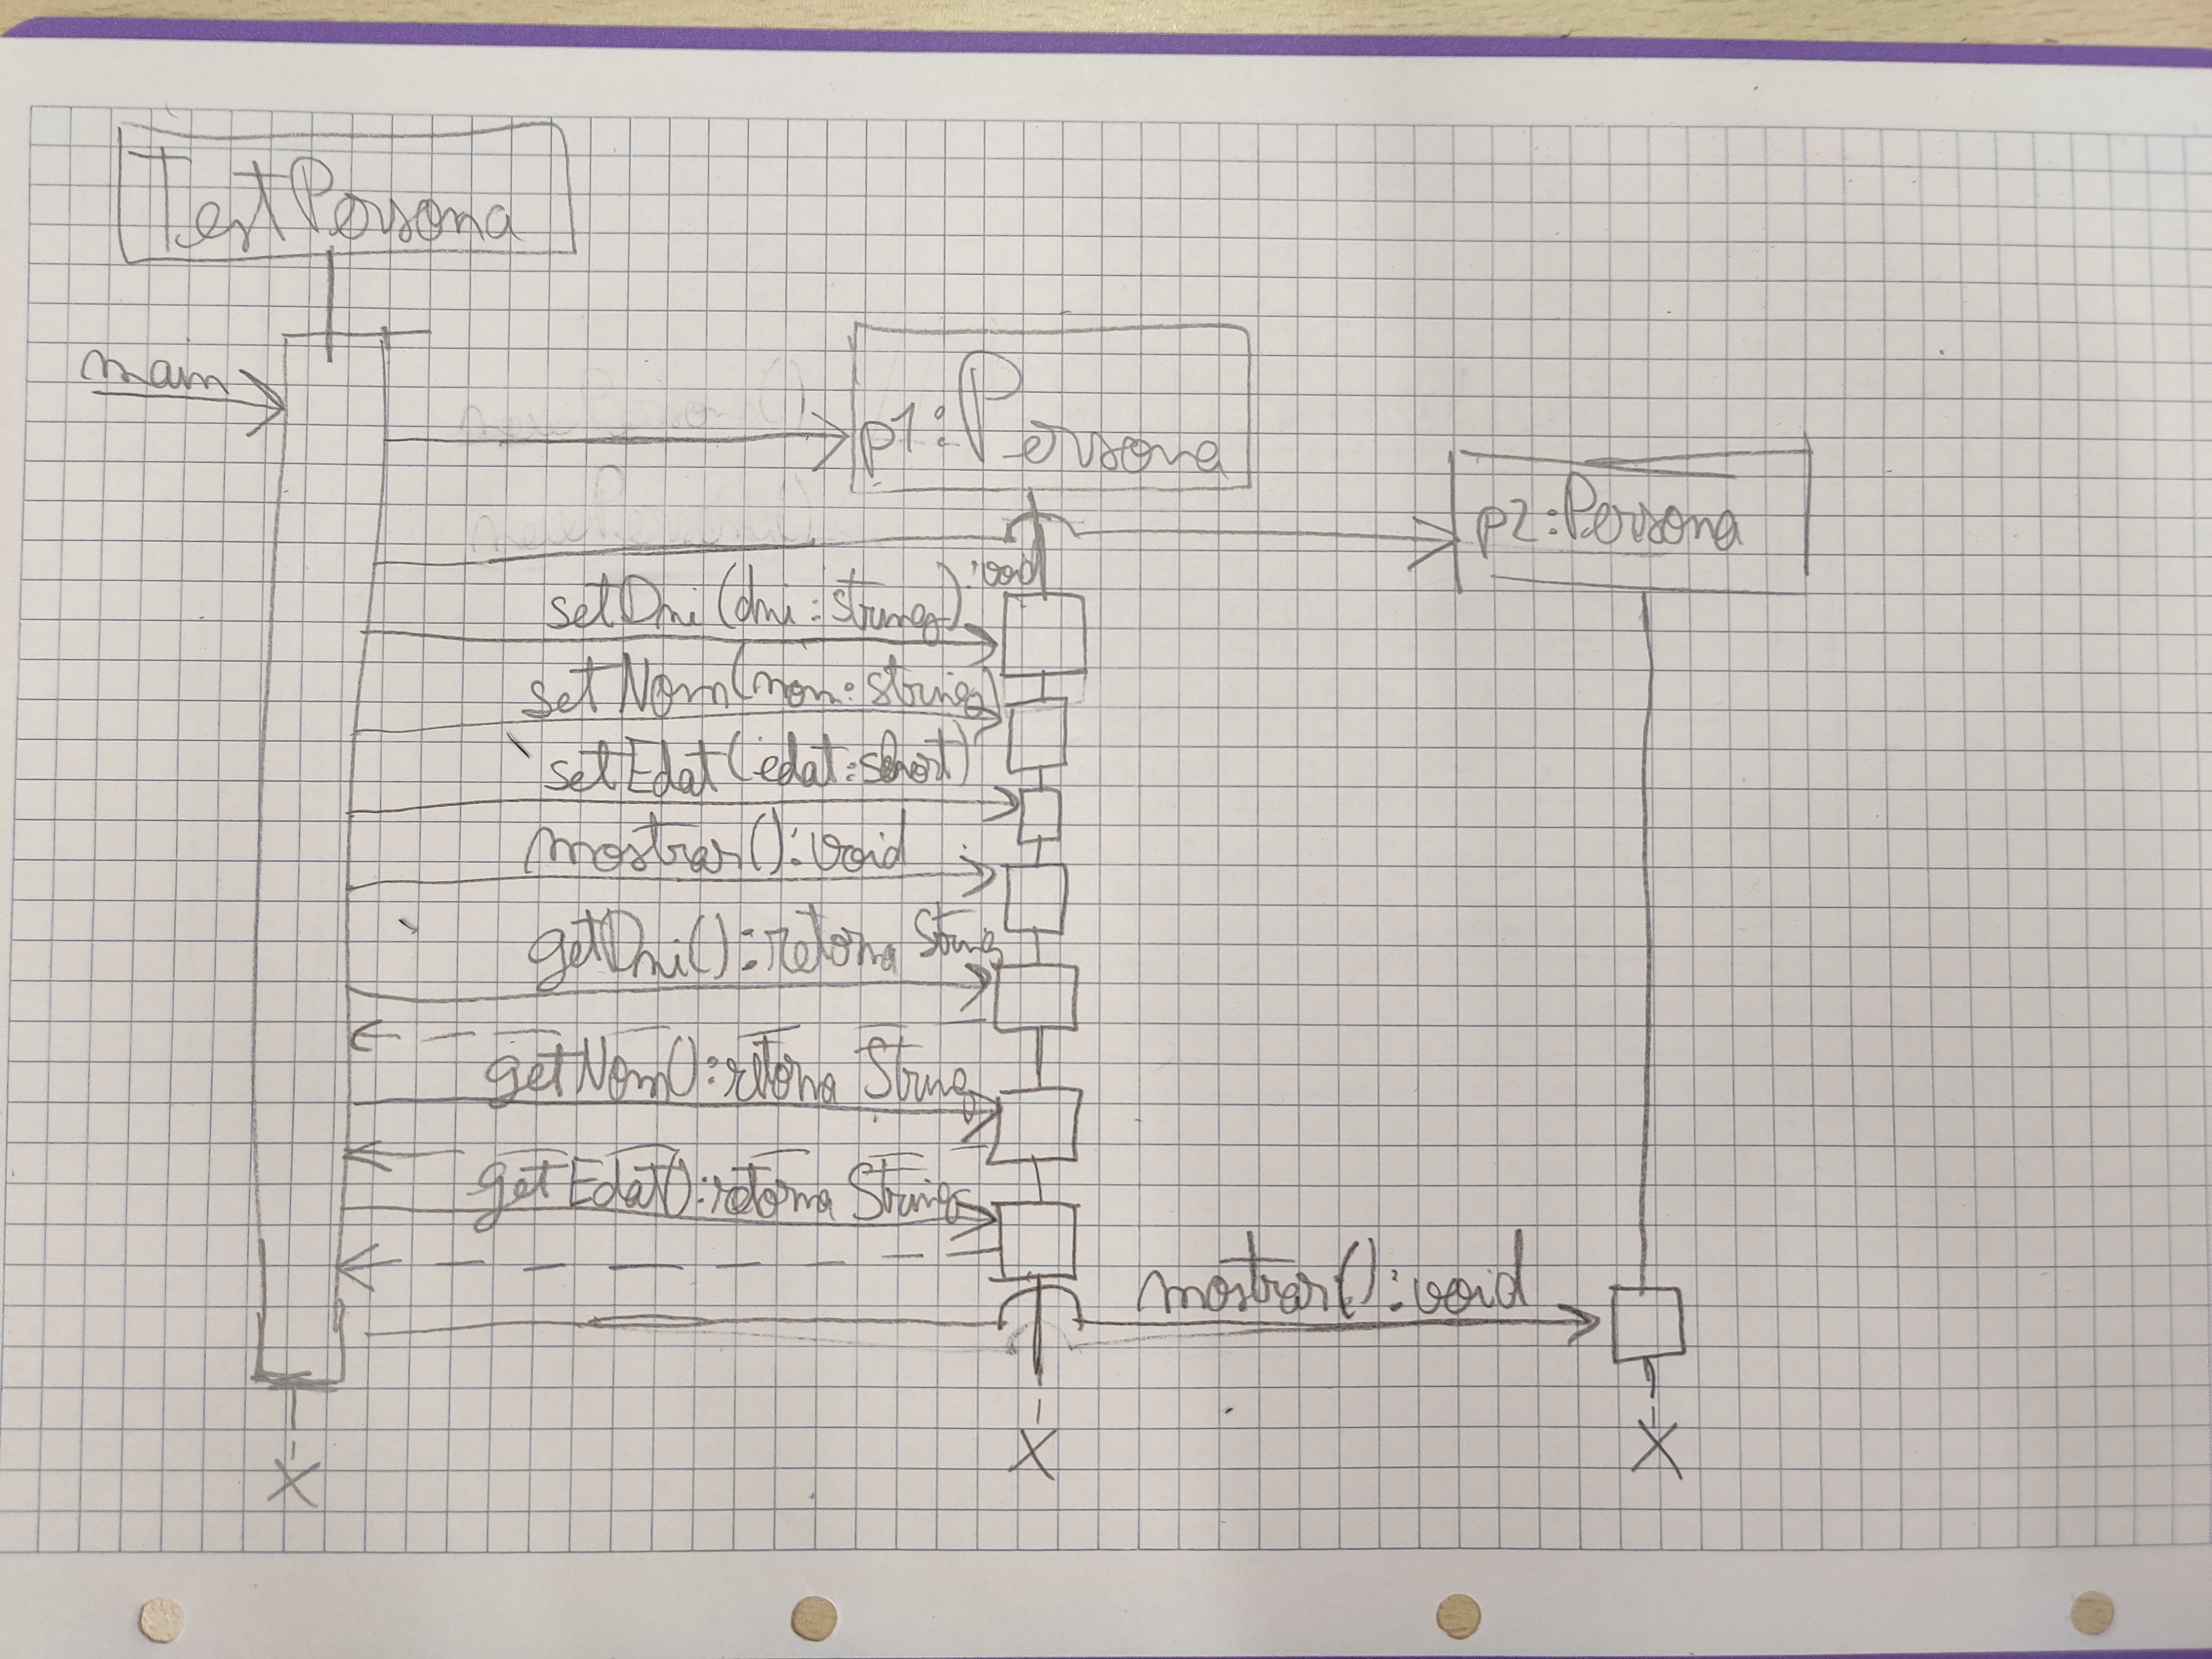 TestPersona
main
p1:Persona
p2:Persona
setDni(dni:String):void
setNom(nom:String)
setEdat(edat:short)
mostrar():void
getDni():retorna String
getNom():retorna String
getEdat():retorna String
mostrar():void
X
X
X